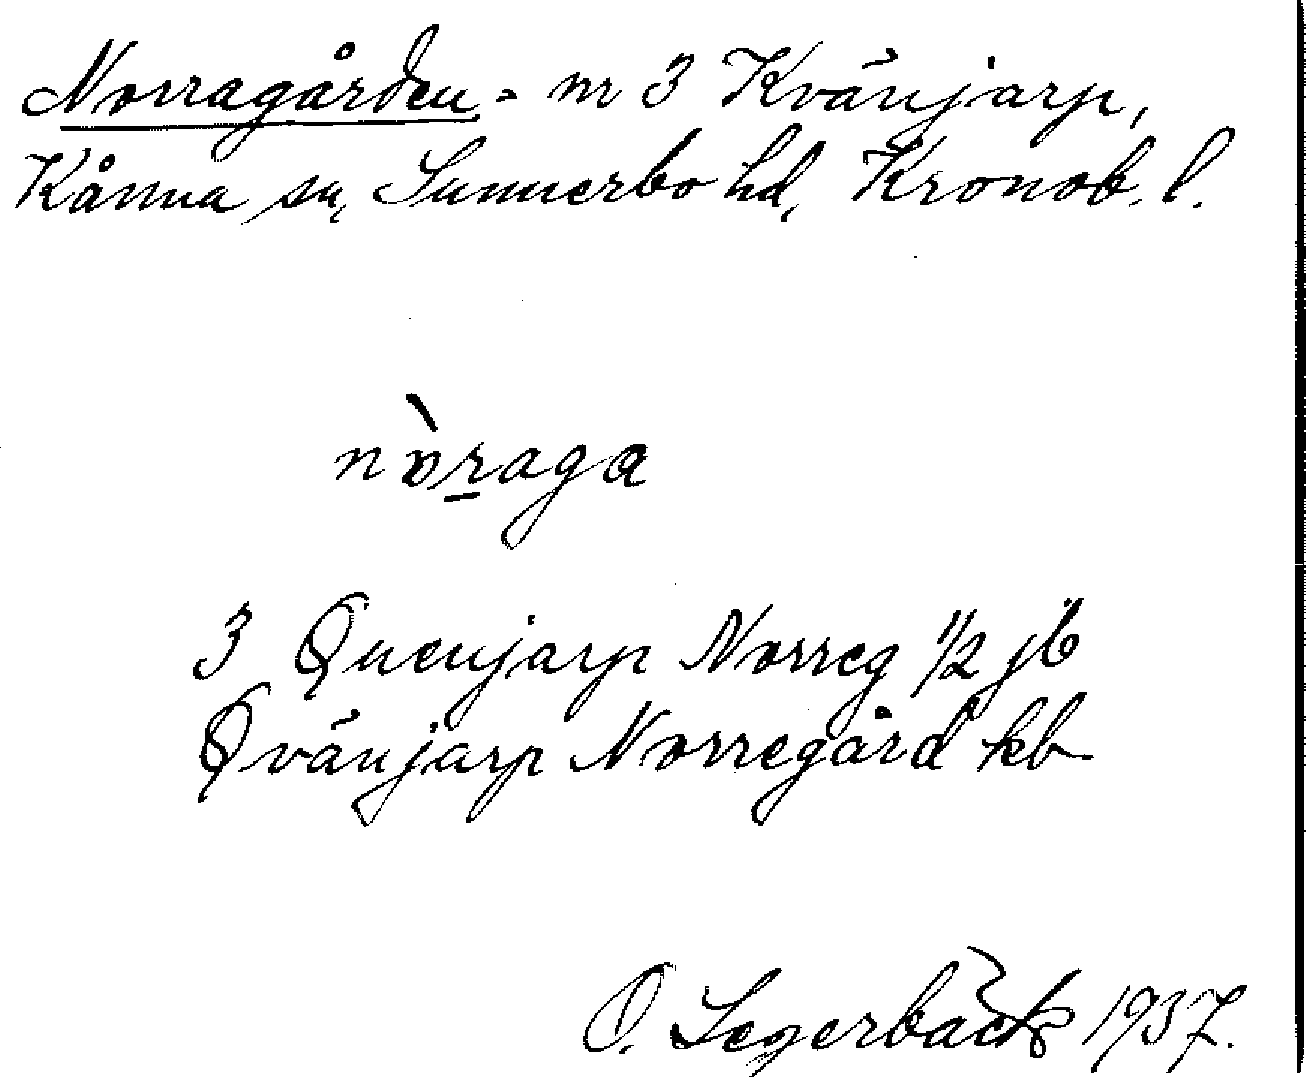 Norragården = nr 3 Kvänjarp,
Kånna sn, Sunnerbo hd, Kronob. l.
nòraga
3 Quenjarp Norreg 1/2 jb
Qvänjarp Norregård kb
O. Segerbäck 1937.